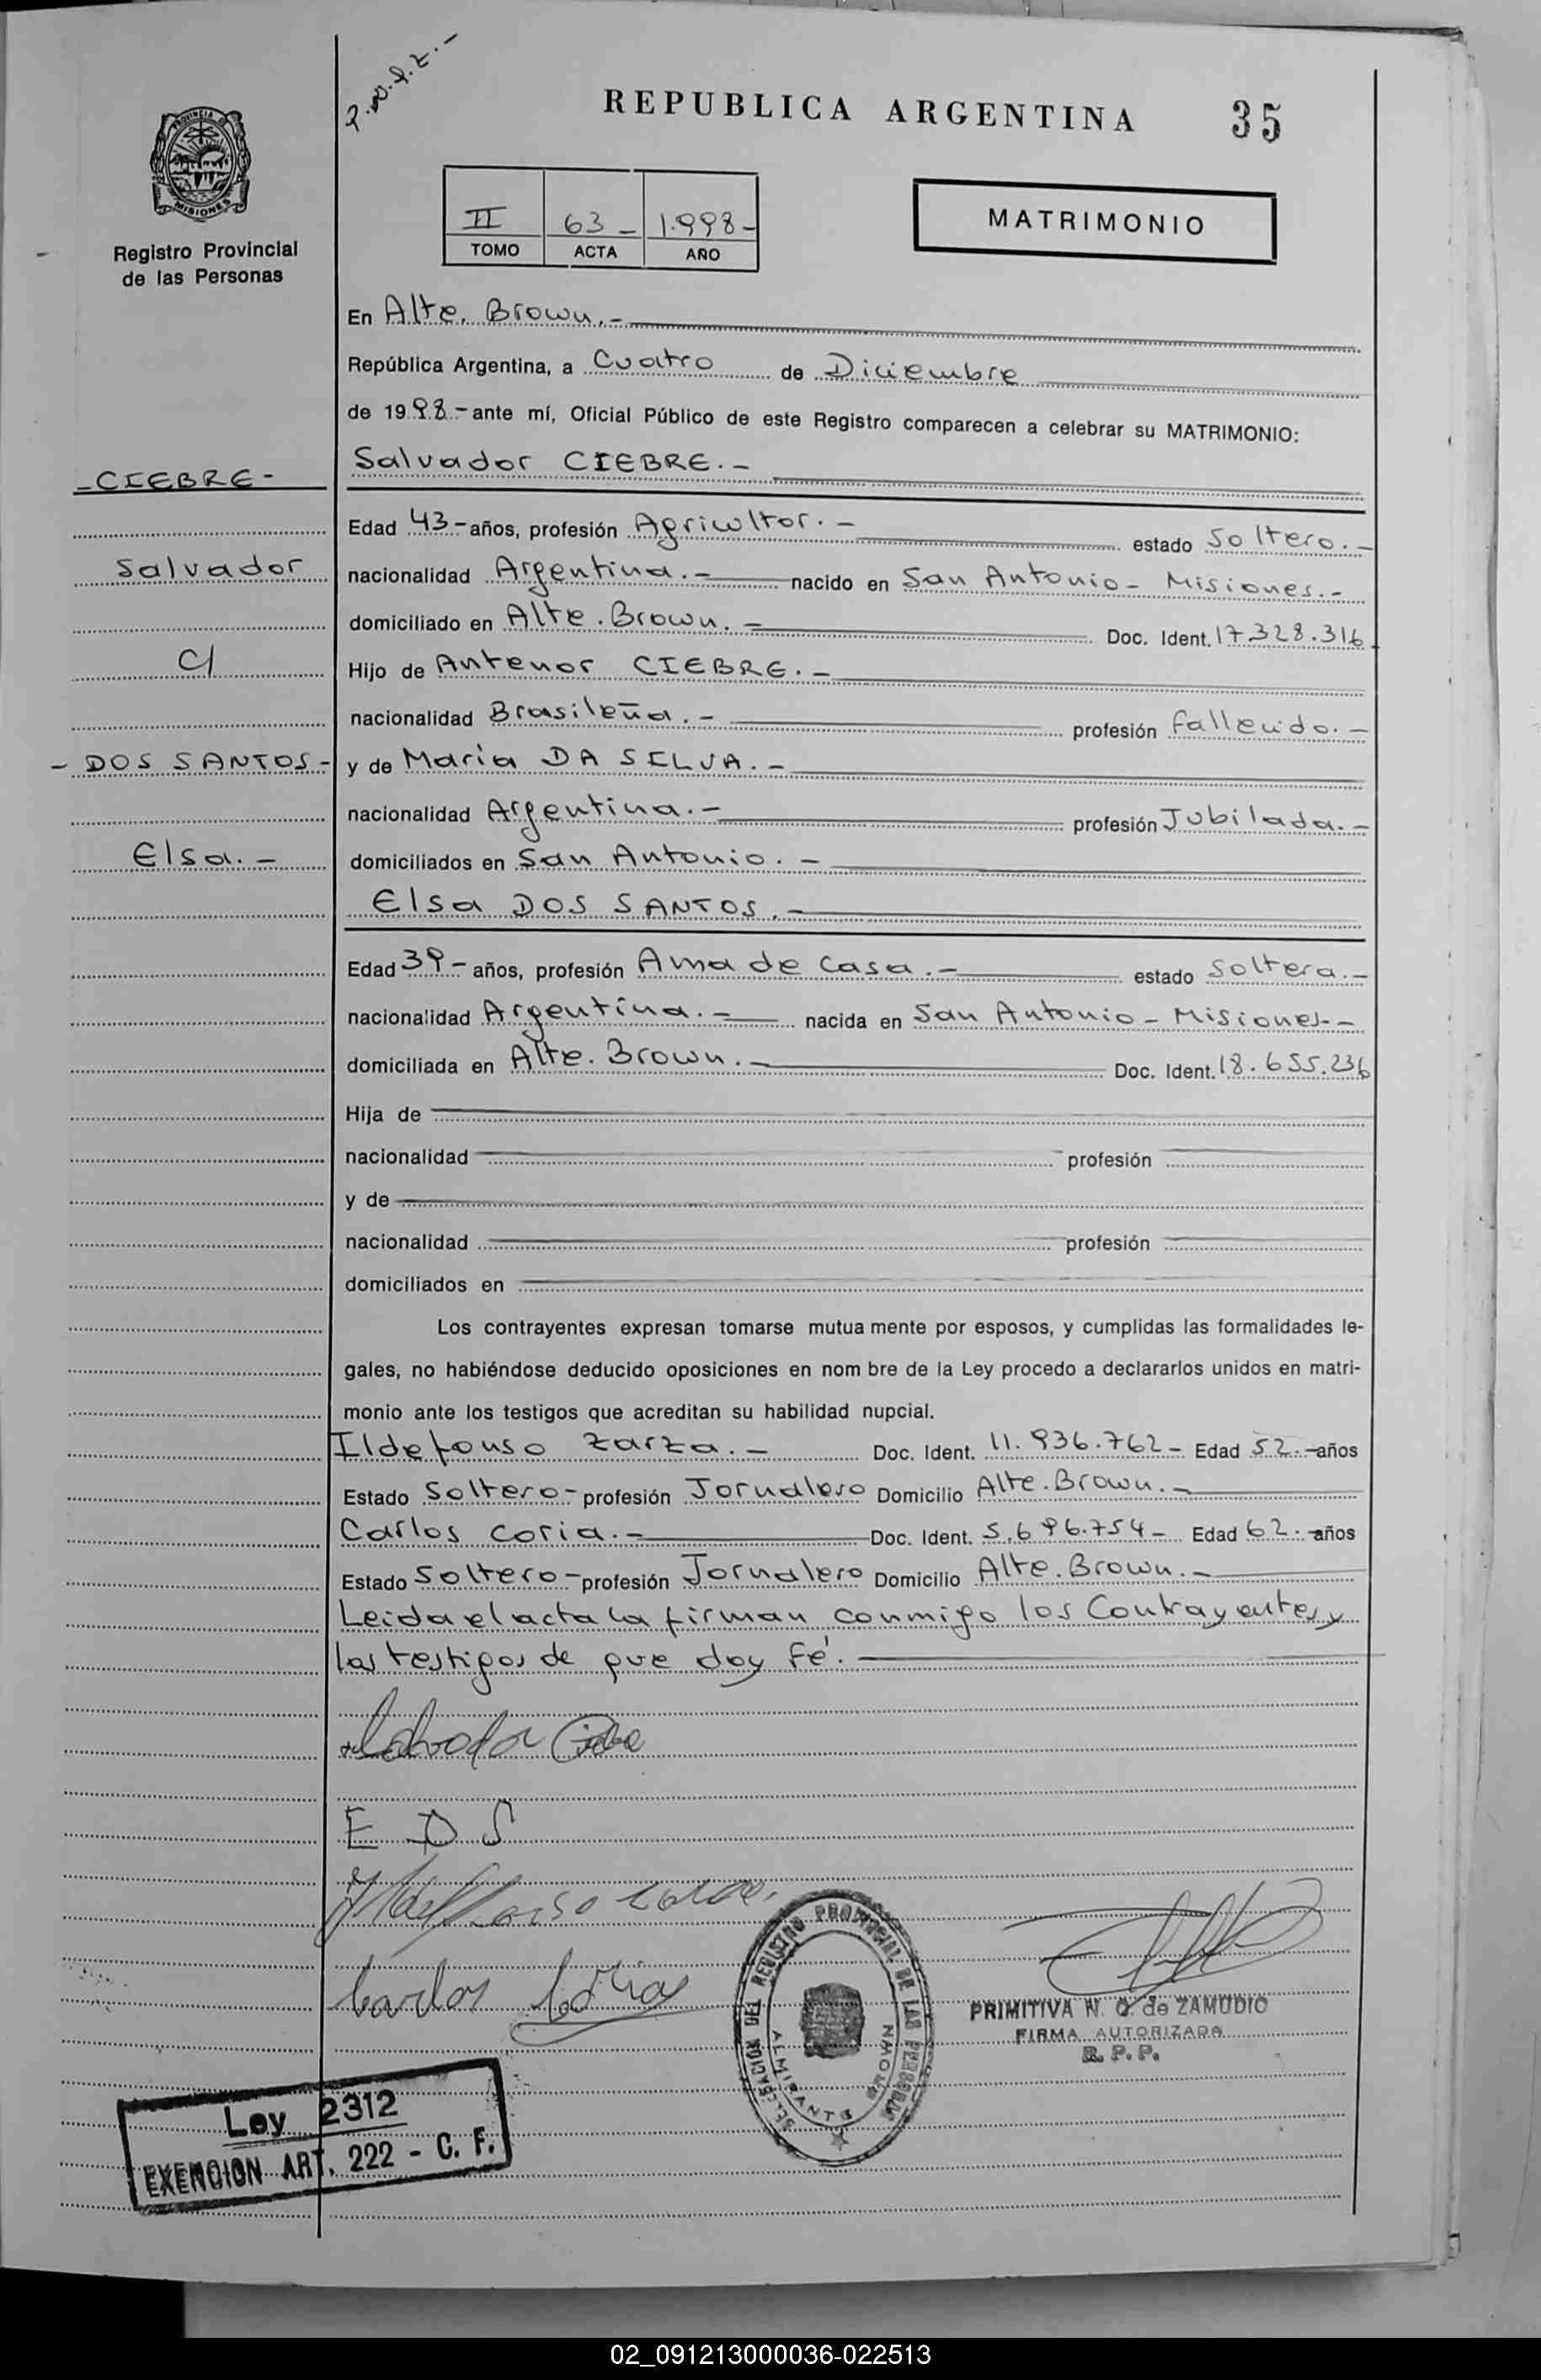 REPUBLICA ARGENTINA 35
PROVINCIA DE
MISIONES
Registro Provincial
de las Personas
II 63 - 1.998-
TOMO ACTA AÑO
MATRIMONIO
En Alte. Brown.-
República Argentina, a Cuatro de Diciembre
de 1998.- ante mí, Oficial Público de este Registro comparecen a celebrar su MATRIMONIO:
-CIEBRE- Salvador CIEBRE.-
Edad 43- años, profesión Agricultor.- estado Soltero.-
Salvador nacionalidad Argentina.- nacido en San Antonio- Misiones.-
domiciliado en Alte. Brown.- Doc. Ident. 17.328.316
C/ Hijo de Antenor CIEBRE.-
nacionalidad Brasileña.- profesión fallecido.-
- DOS SANTOS- y de María DA SILVA.-
nacionalidad Argentina.- profesión Jubilada.-
Elsa.- domiciliados en San Antonio.-
Elsa DOS SANTOS.-
Edad 39- años, profesión Ama de Casa.- estado Soltera.-
nacionalidad Argentina.- nacida en San Antonio- Misiones.-
domiciliada en Alte. Brown.- Doc. Ident. 18.655.236
Hija de
nacionalidad profesión
y de
nacionalidad profesión
domiciliados en
Los contrayentes expresan tomarse mutua mente por esposos, y cumplidas las formalidades le-
gales, no habiéndose deducido oposiciones en nom bre de la Ley procedo a declararlos unidos en matri-
monio ante los testigos que acreditan su habilidad nupcial.
Ildefonso Zarza.- Doc. Ident. 11.936.762- Edad 52.- años
Estado Soltero- profesión Jornalero Domicilio Alte. Brown.-
Carlos Coria.- Doc. Ident. 5.696.754- Edad 62.- años
Estado Soltero- profesión Jornalero Domicilio Alte. Brown.-
Leida el acta la firman conmigo los Contrayentes y
los testigos de que doy Fé.-
Salvador Ciebre
E D S
Carlos Corias
DEL REGISTRO PROVINCIAL DE LAS PERSONAS
ALMIRANTE BROWN
PRIMITIVA N. Q. de ZAMUDIO
FIRMA AUTORIZADA
R. P. P.
Ley 2312
EXENCION ART. 222 - C. F.
02_091213000036-022513